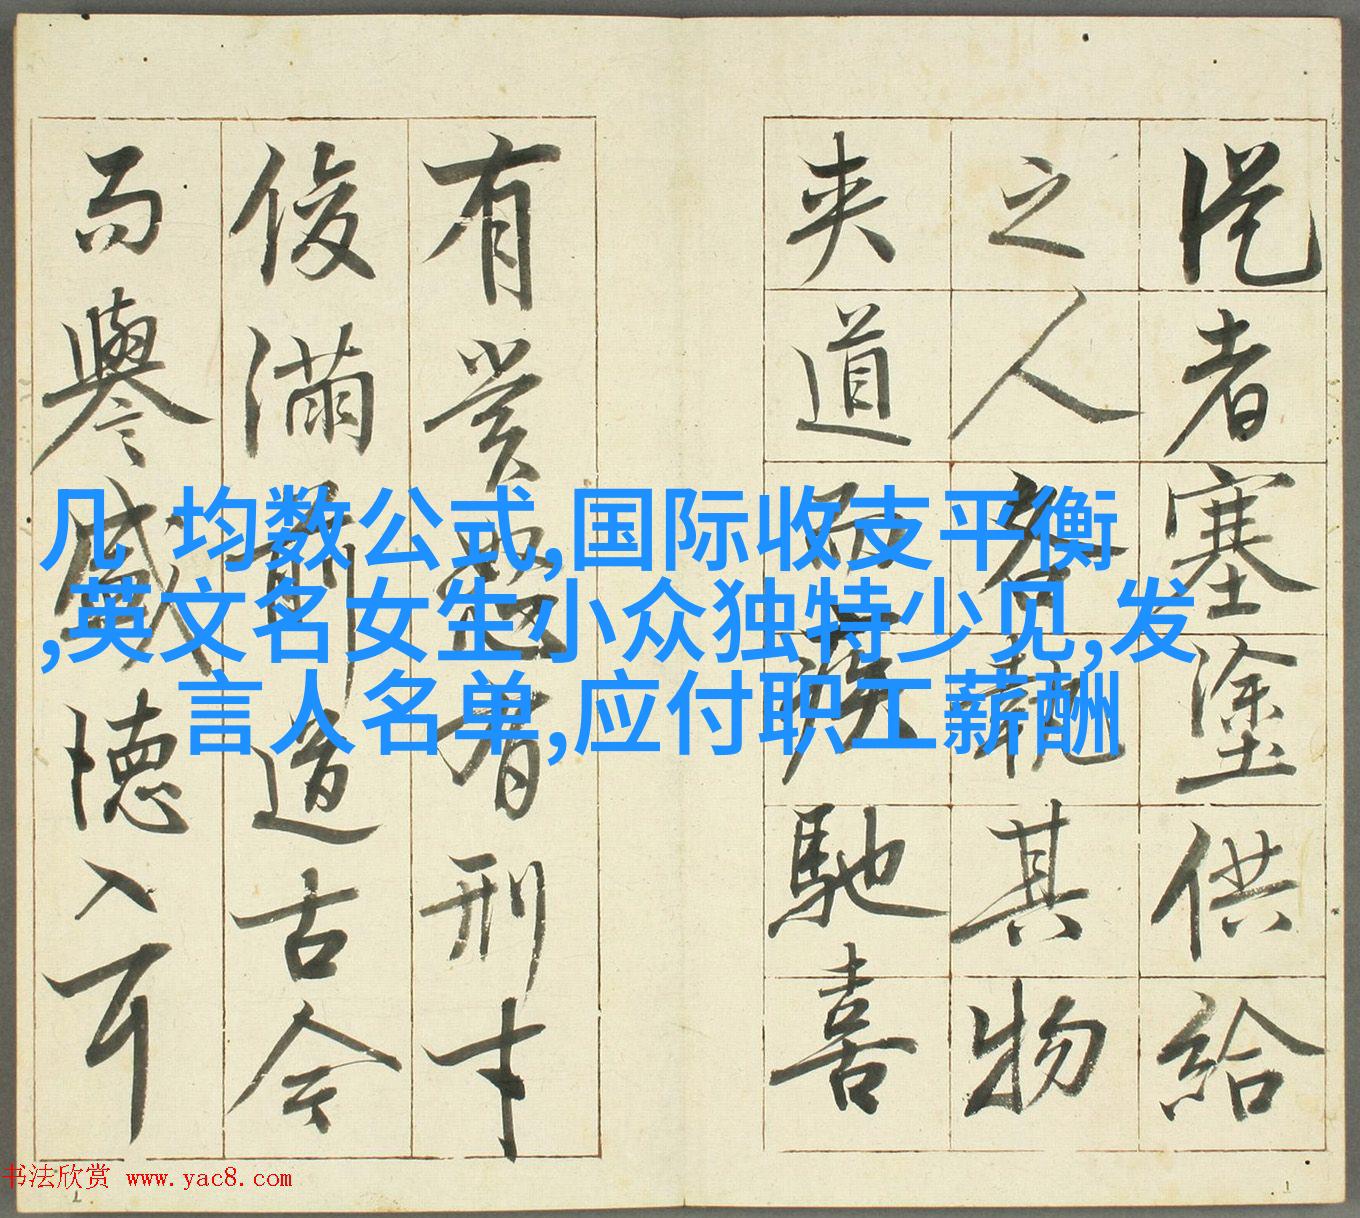 從者塞塗供給
之人各執其物
夾道而疾馳喜
有賞怒有刑才
俊滿前道古今
而譽盛德入耳
几 均数公式,国际收支平衡
,英文名女生小众独特少见,发
言人名单,应付职工薪酬
书法欣赏 www.yac8.com